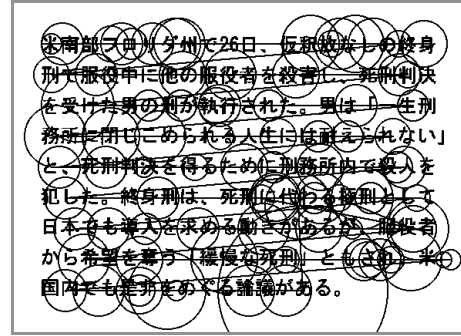 米南部フロリダ州で26日、仮釈放なしの終身
刑で服役中に他の服役者を殺害し、死刑判決
を受けた男の刑が執行された。男は「一生刑
務所に閉じこめられる人生には耐えられない」
と、死刑判決を得るために刑務所内で殺人を
犯した。終身刑は、死刑に代わる極刑として
日本でも導入を求める動きがあるが、服役者
から希望を奪う「緩慢な死刑」ともされ、米
国内でも是非をめぐる論議がある。